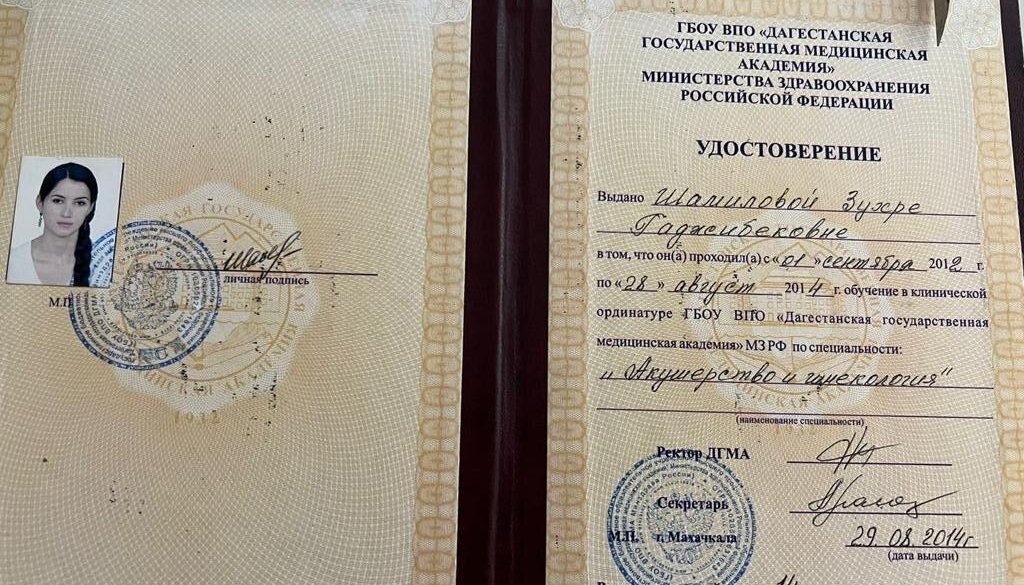 личная подпись
М.П.
1932
ГБОУ ВПО «ДАГЕСТАНСКАЯ
ГОСУДАРСТВЕННАЯ МЕДИЦИНСКАЯ
АКАДЕМИЯ»
МИНИСТЕРСТВА ЗДРАВООХРАНЕНИЯ
РОССИЙСКОЙ ФЕДЕРАЦИИ
УДОСТОВЕРЕНИЕ
Выдано Шамиловой Зухре
Гаджибековне
в том, что он(а) проходил(а) с «01» сентября 2012 г.
по «28» август 2014 г. обучение в клинической
ординатуре ГБОУ ВПО «Дагестанская государственная
медицинская академия» МЗ РФ по специальности:
„Акушерство и гинекология"
(наименование специальности)
Ректор ДГМА
Секретарь
М.П. г. Махачкала 29.08.2014г
(дата выдачи)